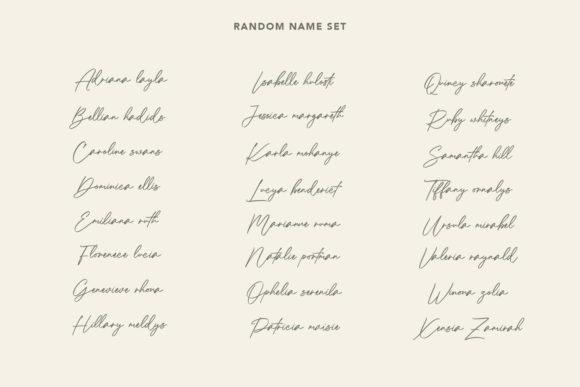 RANDOM NAME SET
Adriana layla
Bellian hadids
Caroline swans
Dominica ellis
Emiliana ruth
Florenece lucia
Genevieve rhona
Hillary meldys
Isabelle hulost
Jessica margareth
Karla mohanye
Lucya benderict
Marianne runa
Natalie portman
Ophelia serenila
Patricia maisie
Quincy sharonete
Ruby whitneys
Samantha hill
Tiffany ornalys
Ursula mirabel
Valeria raynald
Winona zolia
Xensia Zamirah